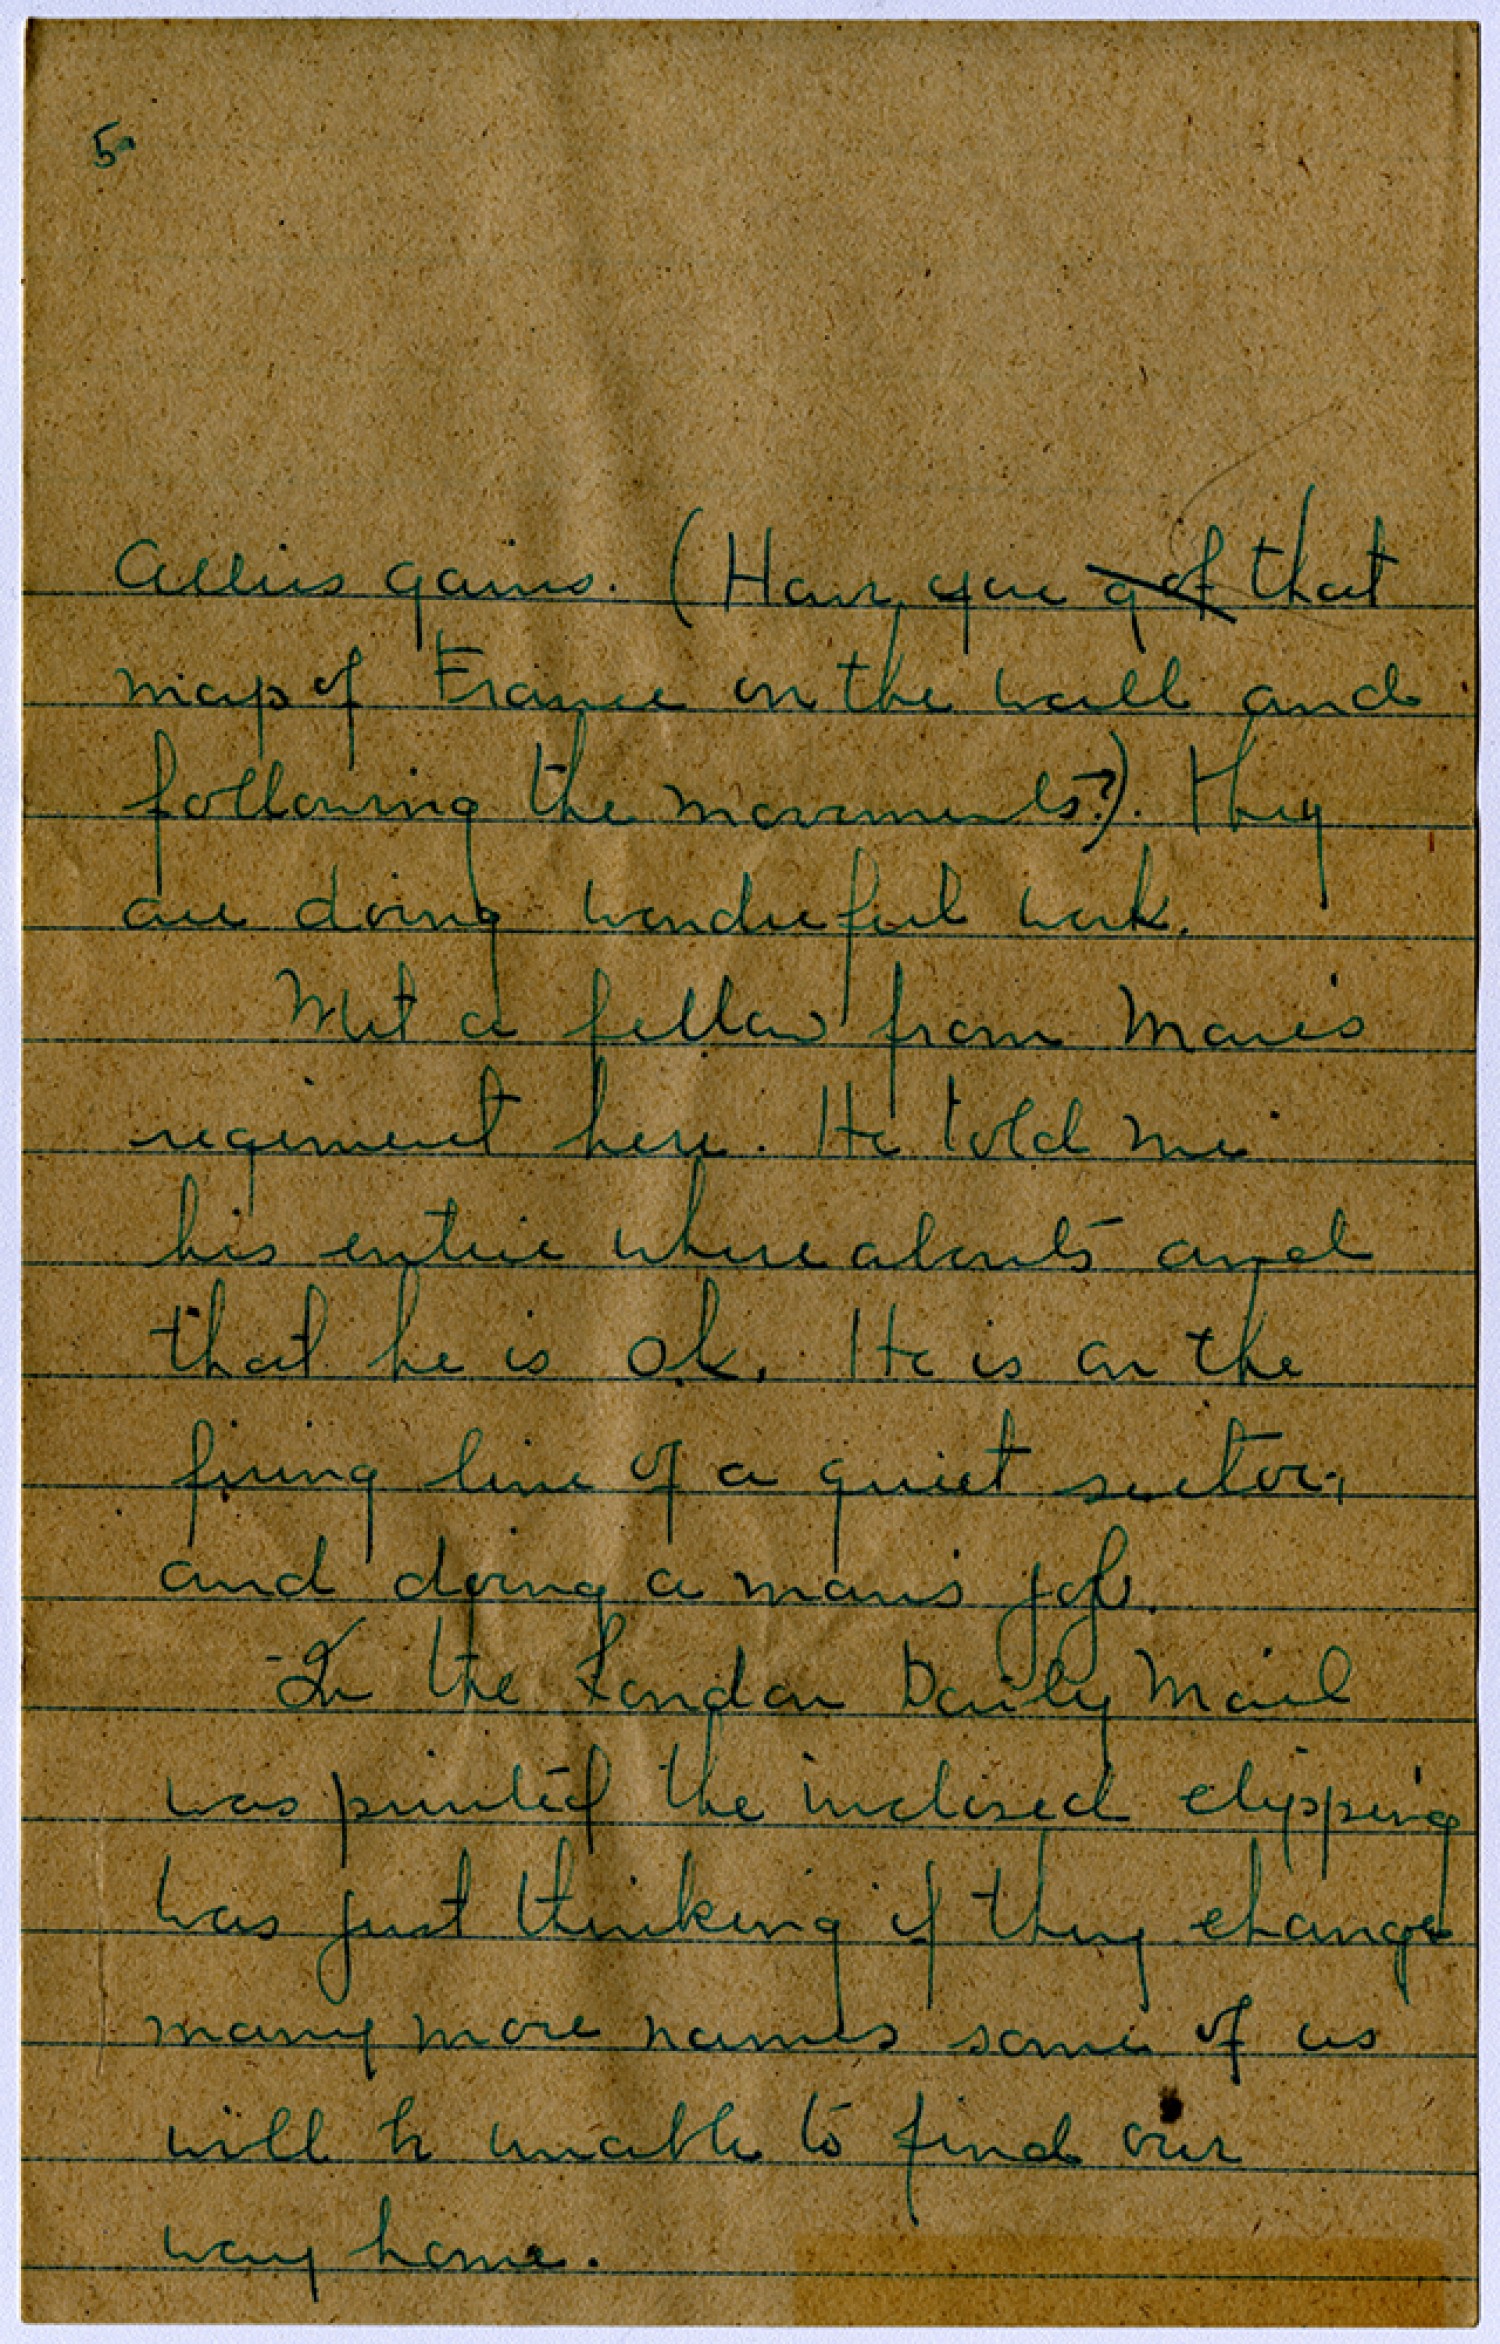 5
Allies gains. (Have you got that
map of France on the wall and
following the movements?). They
are doing wonderful work.
Met a fellow from
regiment here. He told me
his entire whereabouts and
that he is O.k. He is on the
firing line of a quiet sector,
and doing a man's job.
In the London Daily Mail
was printed the inclosed clipping
Was just thinking if they change
many more names some of us
will be unable to find our
way home.